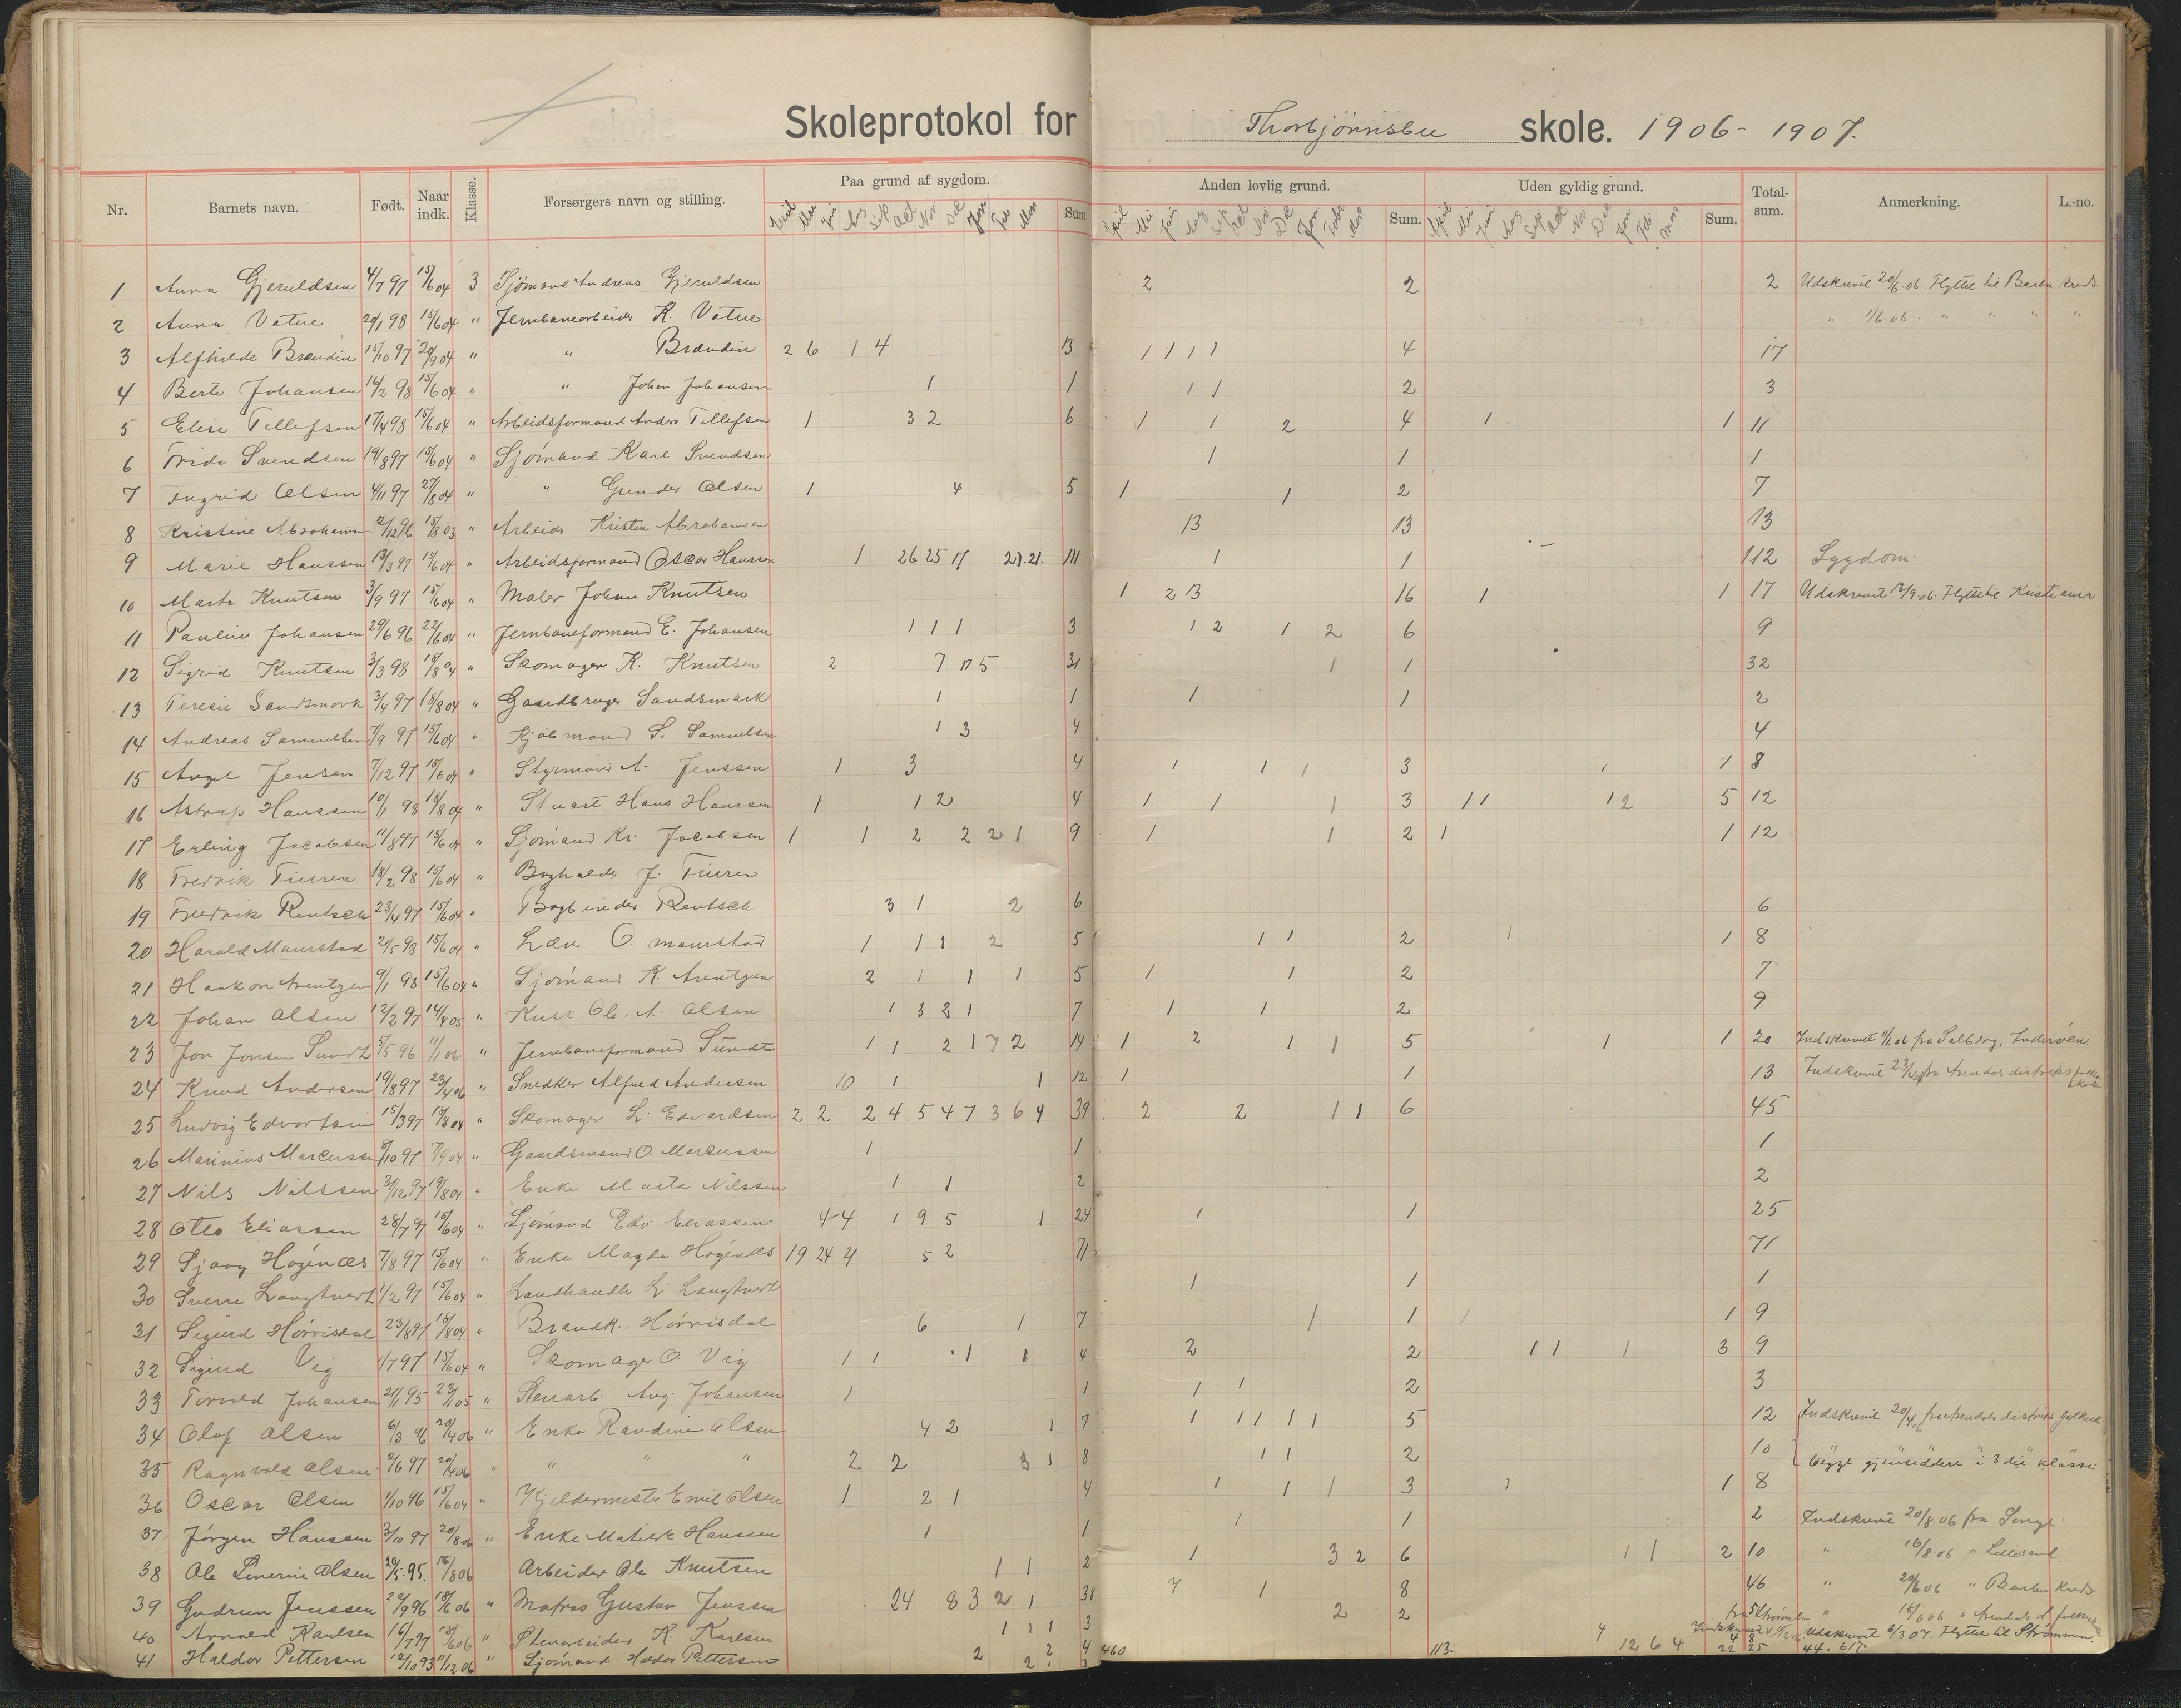 Skoleprotokol for Thorbjørnsbu skole. 1906-1907.
Nr. Barnets navn. Født. Naar indk. Klasse. Forsørgers navn og stilling. Paa grund af sygdom. Sum. Anden lovlig grund. Sum. Uden gyldig grund. Sum. Total-sum. Anmerkning. L.-no.
1 Anna Gjeruldsen 4/7 97 15/6 04 3 Sjømand Andreas Gjeruldsen 2 2 2 Udskrevet 20/6.06. Flyttet til Barbu Kreds.
2 Anna Vatne 29/1 98 15/6 04 " Jernbanearbeider K. Vatne " 1/6.06. " " " "
3 Alfhilde Brændin 15/10 97 20/9 04 " " Brændin 2 6 1 4 13 1 1 1 1 4 17
4 Berte Johansen 14/2 98 15/6 04 " " Johan Johansen 1 1 1 1 2 3
5 Elise Tellefsen 17/4 98 15/6 04 " Arbeidsformand Anders Tellefsen 1 3 2 6 1 1 2 4 1 1 11
6 Frida Svendsen 19/8 97 15/6 04 " Sjømand Karl Svendsen 1 1 1
7 Ingrid Olsen 4/11 97 27/8 04 " " Gunder Olsen 1 4 5 1 1 2 7
8 Kristine Abrahams 2/12 96 15/8 03 " Arbeider Kristen Abrahamsen 13 13 13
9 Marie Hanssen 13/3 97 15/6 04 " Arbeidsformand Oscar Hanssen 1 26 25 17 21. 21. 111 1 1 112 Sygdom.
10 Marta Knutsen 3/9 97 15/6 04 " Maler Johan Knutsen 1 2 13 16 1 1 17 Udskrevet 13/9.06. Flyttet til Kristiania
11 Pauline Johansen 29/6 96 22/6 04 " Jernbaneformand E. Johansen 1 1 1 3 1 2 1 2 6 9
12 Sigrid Knutsen 3/3 98 18/8 04 " Skomager K. Knutsen 2 7 17 5 31 1 1 32
13 Teresie Sandsmark 3/4 97 18/8 04 " Gaardbruger Sandsmark 1 1 1 1 2
14 Andreas Samuelsen 7/9 97 15/6 04 " Kjøbmand S. Samuelsen 1 3 4 4
15 Angel Jensen 7/12 97 15/6 04 " Styrmand A. Jenssen 1 3 4 1 1 1 3 1 1 8
16 Astrup Hanssen 10/1 98 18/8 04 " Stuart Hans Hanssen 1 1 2 4 1 1 1 3 1 1 1 2 5 12
17 Erling Jacobsen 11/8 97 15/6 04 " Sjømand Kr. Jacobsen 1 1 2 2 2 1 9 1 1 2 1 1 12
18 Fredrik Fiuren 18/2 98 15/6 04 " Boghalder J. Fiuren
19 Fredrik Rentsch 23/4 97 15/6 04 " Bogbinder Rentsch 3 1 2 6 6
20 Harald Maurstad 21/5 98 15/6 04 " Lærer O. Maurstad 1 1 1 2 5 1 1 2 1 1 8
21 Haakon Arentzen 9/1 98 15/6 04 " Sjømand K. Arentzen 2 1 1 1 5 1 1 2 7
22 Johan Olsen 12/2 97 14/4 05 " Kusk Ole A. Olsen 1 3 2 1 7 1 1 2 9
23 Jon Jonsen Sundt 5/5 96 11/1 06 " Jernbaneformand Sundt 1 1 2 1 7 2 14 1 2 1 1 5 1 1 20 Indskrevet 11/1 06 fra Salberg, Inderøen
24 Knud Andersen 19/8 97 23/4 06 " Snedker Alfred Andersen 10 1 1 12 1 1 13 Indskrevet 23/4 06 fra Arendals distrikts folke skole
25 Ludvig Edvartsen 15/3 97 18/8 04 " Skomager L. Edvardsen 2 2 2 4 5 4 7 3 6 4 39 2 2 1 1 6 45
26 Marinius Marcussen 8/10 97 7/9 04 " Gaardsmand O. Marcussen 1 1 1
27 Nils Nilssen 31/12 97 19/8 04 " Enke Marta Nilssen 1 1 2 2
28 Otto Eliassen 28/7 97 15/6 04 " Sjømand Edv. Eliassen 4 4 1 9 5 1 24 1 1 25
29 Sjovg Høgenæs 7/8 97 15/6 04 " Enke Magda Høgenæs 19 24 21 5 2 71 71
30 Sverre Langtvert 1/2 97 15/6 04 " Landhandler L. Langtvert 1 1 1
31 Sigurd Hørrisdal 23/8 97 18/8 04 " Brandk. Hørrisdal 6 1 7 1 1 1 1 9
32 Sigurd Vig 1/7 97 15/6 04 " Skomager O. Vig 1 1 1 1 4 2 2 1 1 1 3 9
33 Torvald Johansen 21/1 95 23/1 05 " Stenarb. Aug. Johansen 1 1 1 1 2 3
34 Olaf Olsen 6/3 96 20/4 06 " Enke Randine Olsen 4 2 1 7 1 1 1 1 1 5 12 Indskrevet 20/4 06 fra Arendals distrikts folkesk.
35 Ragnvald Olsen 2/6 97 20/4 06 " " " " 2 2 3 1 8 1 1 2 10 begge gjensiddere i 3die klasse
36 Oscar Olsen 1/10 96 15/6 04 " Kjeldermester Emil Olsen 1 2 1 4 1 1 1 3 1 1 8
37 Jørgen Hanssen 3/10 97 20/8 06 " Enke Matilde Hanssen 1 1 1 1 2 Indskrevet 20/8.06 fra Songe.
38 Ole Severin Olsen 29/5.95. 16/8 06 Arbeider Ole Knutsen 1 1 2 1 3 2 6 1 1 2 10 " 16/8 06 " Lillesand
39 Gudrun Jenssen 22/9 96 18/6 06 " Matros Gustav Jenssen 24 8 3 2 1 38 7 1 8 46 " 20/6 06 " Barbu Kreds
40 Arnold Karlsen 16/7 97 18/6 06 " Stenarbeider K. Karlsen 1 1 1 3 2 2 5 " 18/6 06 " Arendals d. folkesk.
41 Haldor Pettersen 12/10 93 11/12 06 " Sjømand Haldor Pettersen 2 2 4 4 Udskrevet 6/3 07. Flyttet til Strømmen.
460 113. 12 6 4 22 25 44. 617